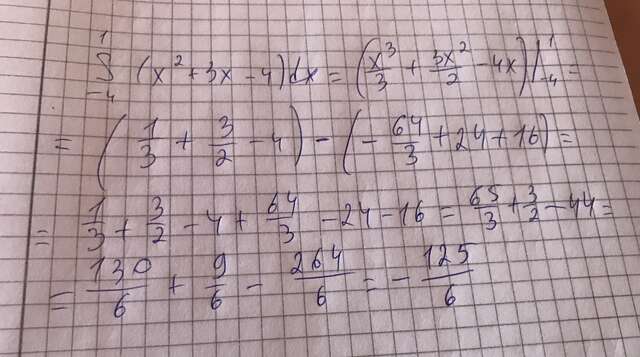 ∫₋₄¹ (x² + 3x - 4) dx = (x³/3 + 3x²/2 - 4x)|₋₄¹ =
= (1/3 + 3/2 - 4) - (- 64/3 + 24 + 16) =
= 1/3 + 3/2 - 4 + 64/3 - 24 - 16 = 65/3 + 3/2 - 44 =
= 130/6 + 9/6 - 264/6 = - 125/6